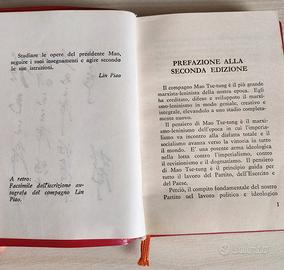 Studiare le opere del presidente Mao,
seguire i suoi insegnamenti e agire secondo
le sue istruzioni.
Lin Piao
A retro:
Facsimile dell'iscrizione au-
tografa del compagno Lin
Piao.
PREFAZIONE ALLA
SECONDA EDIZIONE
Il compagno Mao Tse-tung è il più grande
marxista-leninista della nostra epoca. Egli
ha ereditato, difeso e sviluppato il marxi-
smo-leninismo in modo geniale, creativo e
integrale, elevandolo a uno stadio completa-
mente nuovo.
Il pensiero di Mao Tse-tung è il marxi-
smo-leninismo dell'epoca in cui l'imperia-
lismo va incontro alla disfatta totale e il
socialismo avanza verso la vittoria in tutto il
mondo. E' una potente arma ideologica
nella lotta contro l'imperialismo, contro
il revisionismo e il dogmatismo. Il pensiero
di Mao Tse-tung è il principio guida per
tutto il lavoro del Partito, dell'Esercito e
del Paese.
Perciò, il compito fondamentale del nostro
Partito nel lavoro politico e ideologico
1
subito.it